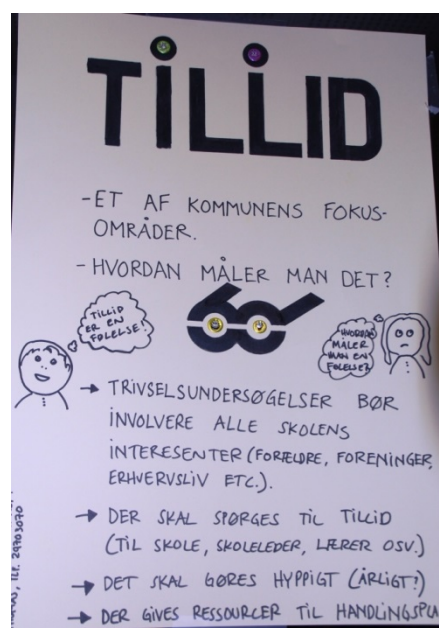 TILLID
-ET AF KOMMUNENS FOKUS-
OMRÅDER.
-HVORDAN MÅLER MAN DET?
TILLID
ER EN
FØLELSE!
HVORDAN
MÅLER
MAN EN
FØLELSE?
→ TRIVSELSUNDERSØGELSER BØR
INVOLVERE ALLE SKOLENS
INTERESENTER (FORÆLDRE, FORENINGER,
ERHVERVSLIV ETC.).
→ DER SKAL SPØRGES TIL TILLID
(TIL SKOLE, SKOLELEDER, LÆRER OSV.)
→ DET SKAL GØRES HYPPIGT (ÅRLIGT?)
→ DER GIVES RESSOURCER TIL HANDLINGSPLA
TLF. 29703070